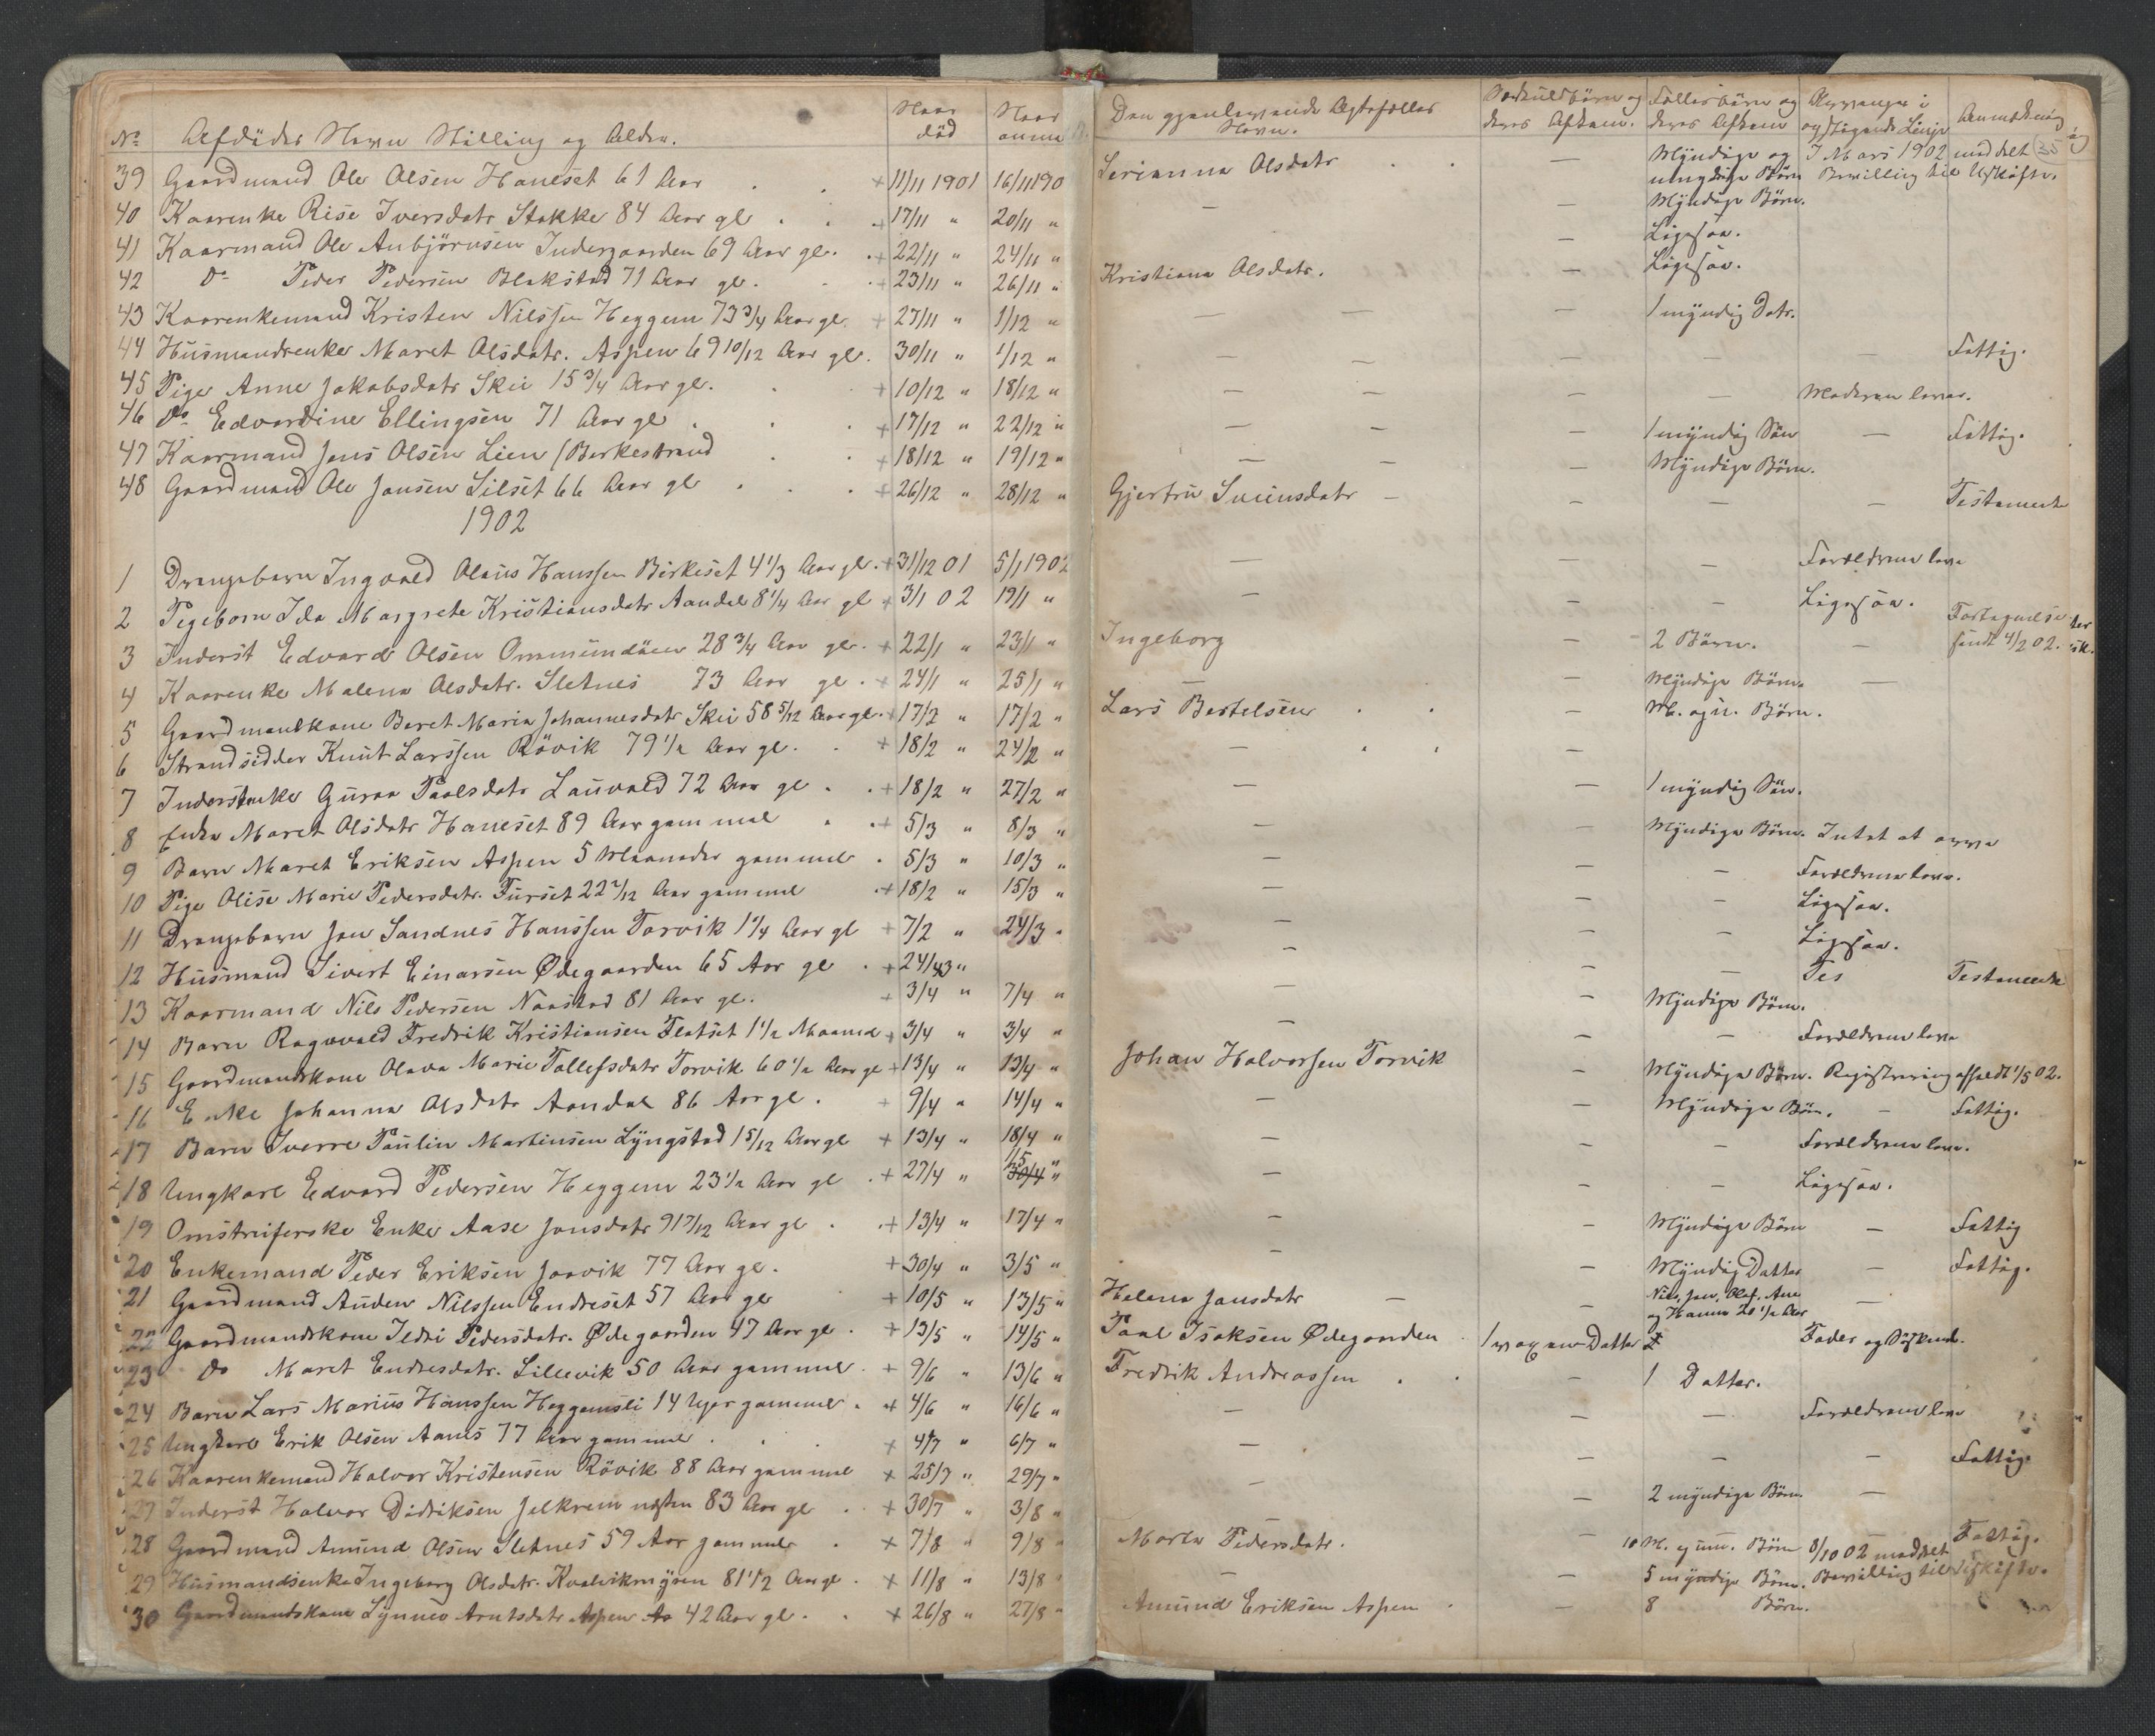 No Afdødes Navn Stilling og Alder. Naar død Naar anm Den gjenlevende Ægtefælles Navn. Særkuldbörn og deres Afkom. Fællesbörn og deres Afkom Arvinger i opstigende Linje Anmærkning
35
39 Gaardmand Ole Olsen Haneset 61 Aar + 11/11 1901 16/11 190 Serianna Olsdatr — Myndige og umyndige Börn I Mars 1902 meddelt Bevilling til Uskifte.
40 Kaarenke Rise Iversdatr Stokke 84 Aar gl + 17/11 " 20/11 " — — Myndige Börn.
41 Kaarmand Ole Anbjörnsen Indergaarden 69 Aar gl. + 22/11 " 24/11 " — Ligesaa.
42 Do Peder Pedersen Blakstad 71 Aar gl. + 23/11 " 26/11 " Kristiana Olsdatr. — Ligesaa.
43 Kaarenkemand Kristen Nilssen Heggem 73 3/4 Aar gl. + 27/11 " 1/12 " — — — 1 myndig Datr.
44 Husmandsenke Maret Olsdatr. Aspen 69 10/12 Aar gl. 30/11 " 1/12 " — — — — — Fattig.
45 Pige Anne Jakobsdatr Skei 15 3/4 Aar gl. + 10/12 " 18/12 " — — — — Moderen lever.
46 Do Edvardine Ellingsen 71 Aar gl + 17/12 " 22/12 " — — — 1 myndig Sön — Fattig.
47 Kaarmand Jens Olsen Lien (Birkestrand + 18/12 " 19/12 " — — — Myndige Börn.
48 Gaardmand Ole Jonsen Silset 66 Aar gl + 26/12 " 28/12 " Gjertru Sveinsdatr — — — — Testamente
1902
1 Drengebarn Ingvald Olaus Hanssen Birkeset 4 1/3 Aar gl. + 31/12 01 5/1 1902 — — — Forældrene leve
2 Pigebarn Ida Margrete Kristiansdatr Aandal 8 1/4 Aar gl + 3/1 02 19/1 " — — — Ligesaa.
3 Inderst Edvard Olsen Ommundöien 28 3/4 Aar gl. + 22/1 " 23/1 " Ingeborg — 2 Börn. — Fortegnelse sendt 4/2 02.
4 Kaarenke Malena Olsdatr. Sletnes 73 Aar gl. + 24/1 " 25/1 " — — Myndige Börn. —
5 Gaardmandkone Beret Maria Johannesdatr Skei 58 5/12 Aar gl. + 17/2 " 17/2 " Lars Bertelsen — M. og u. Börn.
6 Strandsidder Knut Larssen Rövik 79 1/2 Aar gl. + 18/2 " 24/2 " — —
7 Inderstenke Guroa Paalsdatr Lauvald 72 Aar gl + 18/2 " 27/2 " — — 1 myndig Sön.
8 Enke Maret Olsdatr Haneset 89 Aar gammel + 5/3 " 8/3 " — — Myndige Börn. Intet at arve
9 Barn Maret Eriksen Aspen 5 Maaneder gammel . 5/3 " 10/3 " — — — Forældrene leve.
10 Pige Olise Marie Pedersdatr. Furset 22 7/12 Aar gammel + 18/2 " 15/3 " — — — Ligesaa.
11 Drengebarn Jon Sandnes Hanssen Torvik 1 1/4 Aar gl + 7/2 " 24/3 " — — — Ligesaa.
12 Husmand Sivert Einarsen Ødegaarden 65 Aar gl . + 24/3 " — — — Tes Testamente
13 Kaarmand Nils Pedersen Naastad 81 Aar gl. + 3/4 " 7/4 " — — Myndige Börn.
14 Barn Ragnvald Fredrik Kristiansen Flatset 1 1/2 Maaned + 3/4 " 3/4 " — — — Forældrene leve
15 Gaardmandskone Olava Marie Tollefsdatr Torvik 60 1/2 Aar gl + 13/4 " 13/4 " Johan Halvorsen Torvik — Myndige Börn. Registrering afholdt 1/5 02.
16 Enke Johanna Olsdatr Aandal 86 Aar gl. + 9/4 " 14/4 " — — Myndige Börn. — Fattig.
17 Barn Sverre Paulin Martinsen Lyngstad 1 5/12 Aar gl + 13/4 " 18/4 " — — — Forældrene leve.
18 Ungkarl Edvard Pedersen Heggem 23 1/2 Aar gl . + 27/4 " 1/5 " 30/4 " — — — Ligesaa.
19 Omstreiferske Enke Aase Jonsdatr 91 7/12 Aar gl . + 13/4 " 17/4 " — — Myndige Börn — Fattig
20 Enkemand Peder Eriksen Jaavik 77 Aar gl. + 30/4 " 3/5 " — — Myndig Datter — Fattig.
21 Gaardmand Auden Nilssen Endreset 57 Aar gl + 10/5 " 13/5 " Helena Jonsdatr — — Nils, Jon, Olaf, Ane og Hanna 20 1/2 Aar —
22 Gaardmandskone Sedsi Pedersdatr. Ødegaarden 47 Aar gl . + 13/5 " 14/5 " Paal Isaksen Ødegaarden 1 voxen Datter Fader og Söskende.
23 Do Maret Endresdatr. Lillevik 50 Aar gammel + 9/6 " 13/6 " Fredrik Andreassen — 1 Datter.
24 Barn Lars Marius Hanssen Heggemsli 14 Uger gammel . + 4/6 " 16/6 " — — — Forældrene leve
25 Ungkarl Erik Olsen Aanes 77 Aar gammel . + 4/7 " 6/7 " — — — — Fattig.
26 Kaarenkemand Halvor Kristensen Rövik 88 Aar gammel + 25/7 " 29/7 " — — 2 myndige Börn. —
27 Inderst Halvor Didriksen Jelkrem næsten 83 Aar gl . + 30/7 " 3/8 " — — Fattig.
28 Gaardmand Amund Olsen Sletnes 59 Aar gammel . + 7/8 " 9/8 " Marta Pedersdatr. 10 M. og um. Börn 8/10 02 meddelt Bevilling til Uskifte.
29 Husmandsenke Ingeborg Olsdatr. Kvalvikmyren 81 1/2 Aar gl . + 11/8 " 13/8 " — — 5 myndige Börn.
30 Gaardmandskone Synnev Arntsdatr Aspen 42 Aar gl . + 26/8 " 27/8 " Amund Eriksen Aspen — 8 Börn.